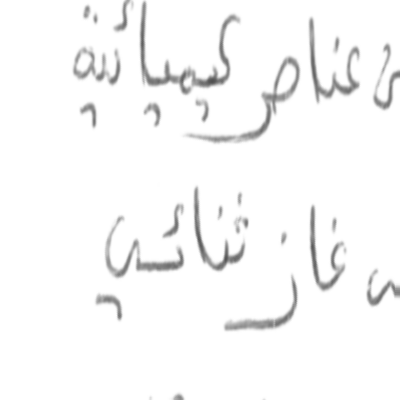 عناصر كيميائية
غاز ثنائي